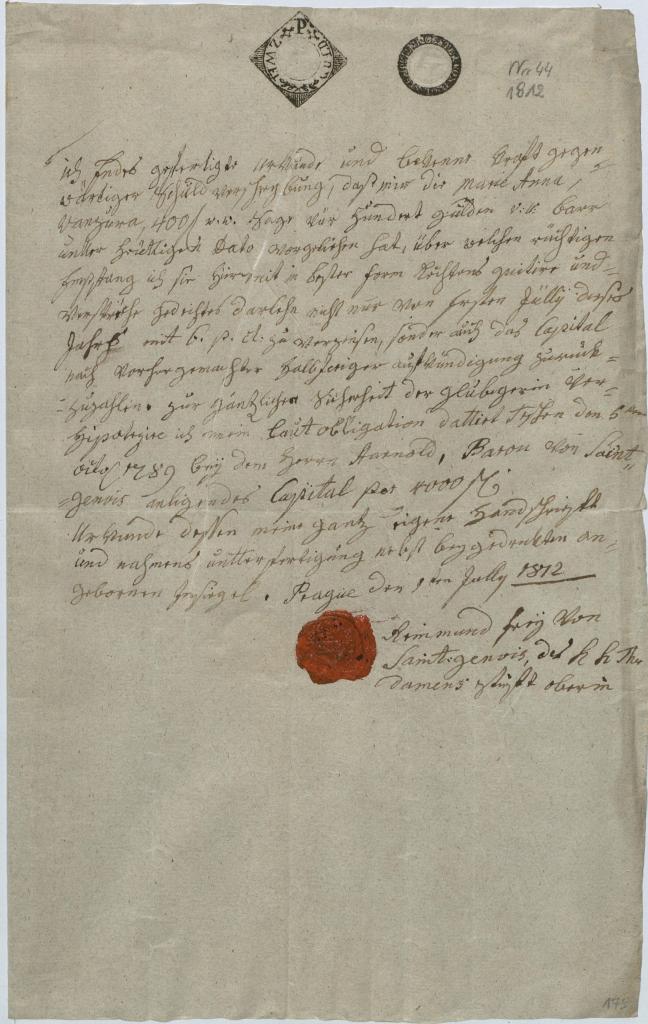 ZWEI P GULD
Nro 44
1812
ich Endes gefertigte Urkunde und bekenne kraft gegen-
wärtiger Schuld verschreybung, daß mir die Marie Anna,
Vanzura, 400 f w.w. Sage vür Hundert gulden barr
unter heutlichen Dato vorgeliehen hat, über welchen rüchtigen
Empfang ich sie hiermit in bester form Rechtens quitire und
verspreche gedachtes darlehn nicht nur von Ersten Jully dieses
Jahrs mit 6. p. ct. zu verzinsen, sonder auch das Capital
nach vorher gemachter halbjeriger aufkündigung zurück-
zuzahlen. zur gäntzlichen Sicherheit der glübigerin ver-
hipotezire ich mein laut obligation dattirt den 6
1789 bey dem Herrn Aarnold, Baron von Saint-
genois anligendes Capital per 4000 f
Urkunde dessen meine gantz eigene Handschrieft
und nahmens untterfertigung nebst beygedrukten an-
gebornen Insiegel. Prague den 1ten Jully 1812
Reimund frey von
Saint-genois, des k k
damens stüft oberin
175